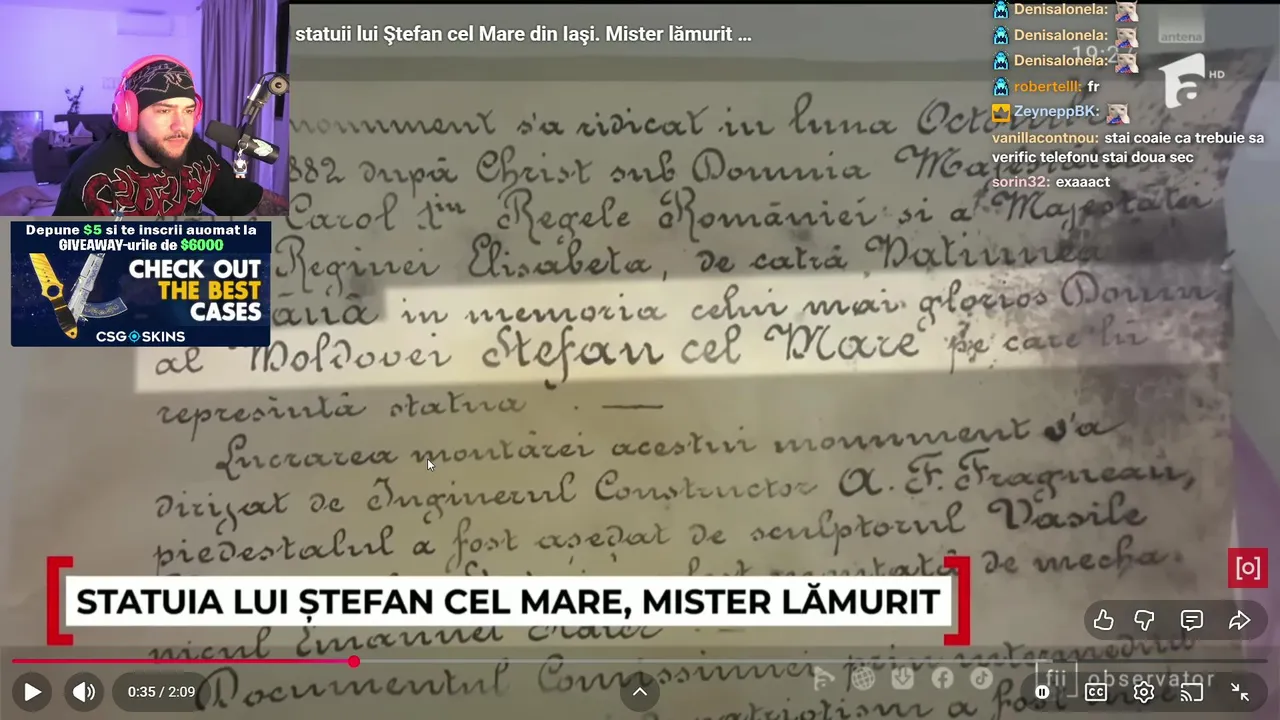 statuii lui Ştefan cel Mare din Iaşi. Mister lămurit ...
antena
HD
Denisalonela:
Denisalonela:
Denisalonela:
robertelll: fr
ZeyneppBK:
vanillacontnou: stai coaie ca trebuie sa
verific telefonu stai doua sec
sorin32: exaaact
Depune $5 si te inscrii auomat la
GIVEAWAY-urile de $6000
CHECK OUT
THE BEST
CASES
CSGOSKINS
monument s'a ridicat in luna
882 după Christ sub Domnia
Carol Iiu Regele României si a Majestatei
Reginei Elisabeta, de catră Natiunea
ână in memoria celui mai glorios Domn
al Moldovei Stefan cel Mare pe care lu
represintă statua . —
Lucrarea montărei acestui monument s'a
dirijat de Inginerul Constructor A. F. Fragneau,
piedestalul a fost asedat de sculptorul Vasile
de mecha-
STATUIA LUI ȘTEFAN CEL MARE, MISTER LĂMURIT
nicul Emanuel
Documentul Comissiunei prin
patriotism a fost
fii observator
0:35 / 2:09
CC